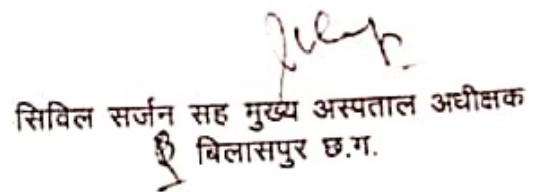 सिविल सर्जन सह मुख्य अस्पताल अधीक्षक
बिलासपुर छ.ग.